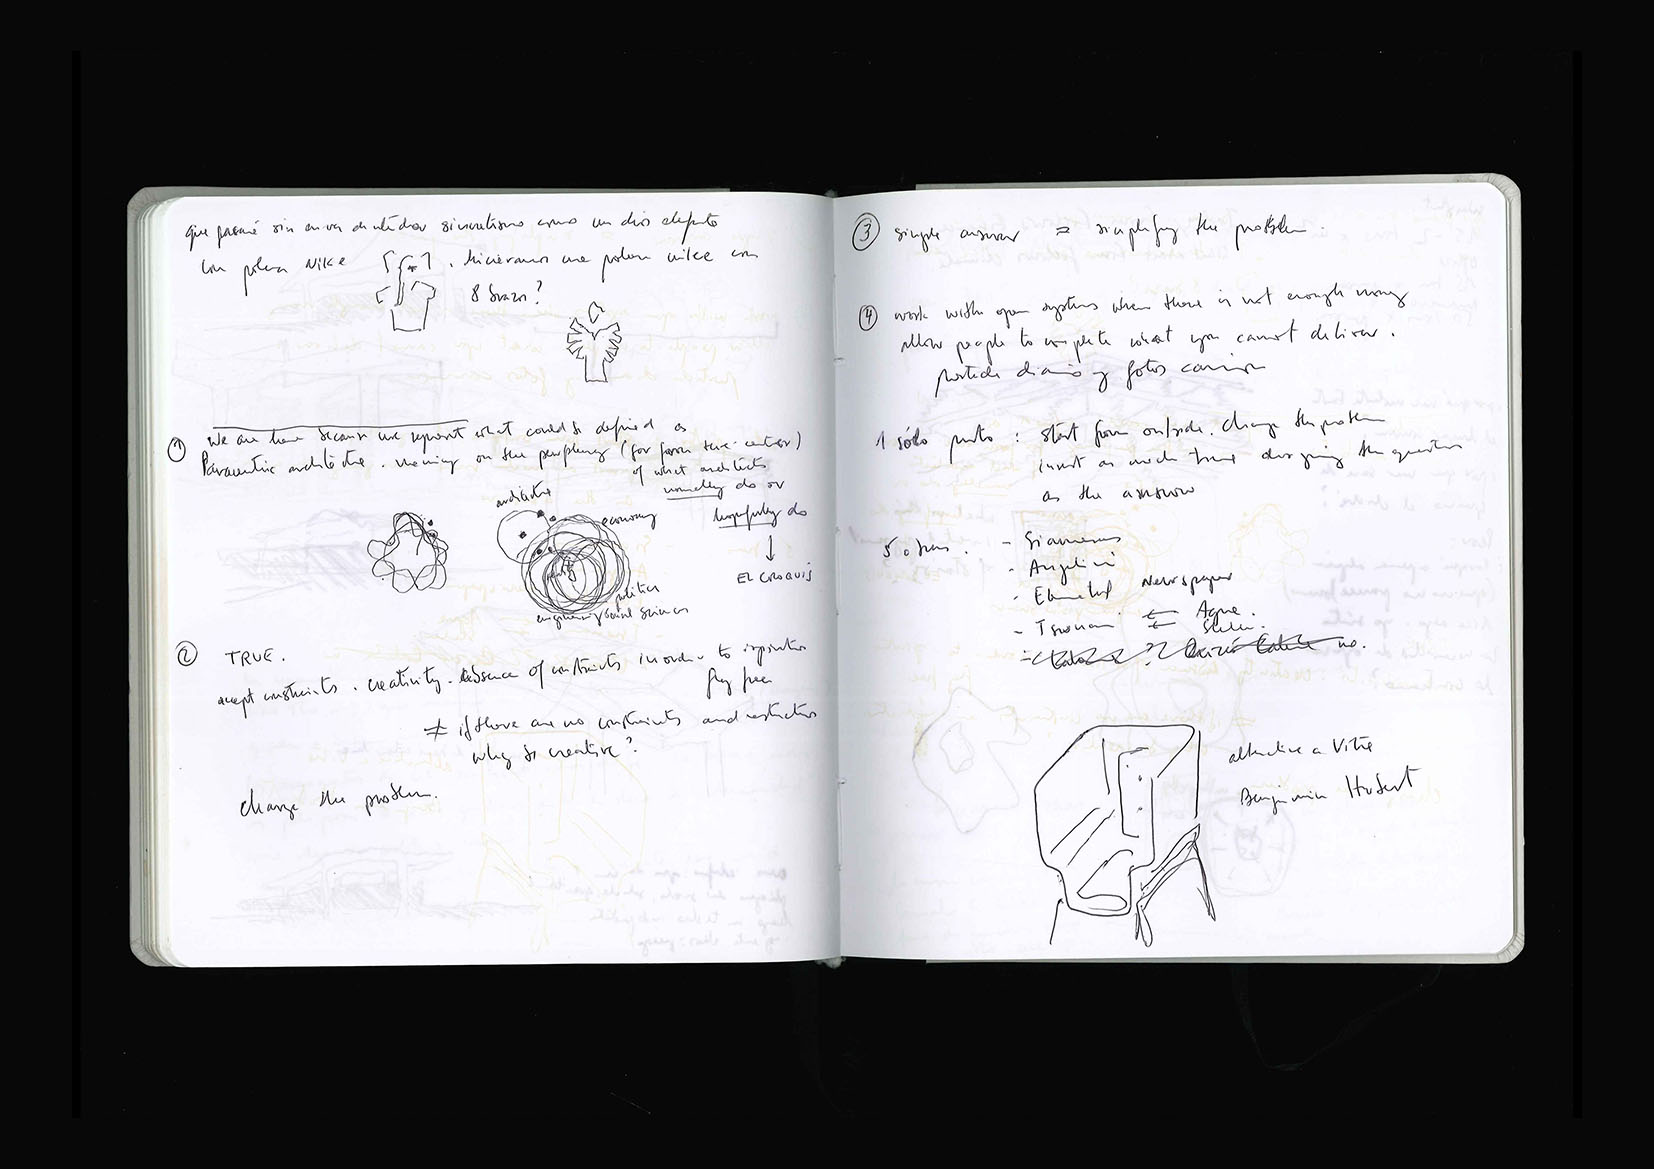 que pasaría sin
sincretismo como un dios elefante
con polera NIKE . hiciéramos una polera nike con
8 brazos?
① We are here because we represent what could be defined as
Paracentric architecture. meaning on the periphery (far from the center)
of what architects
normally do or
hopefully do
↓
EL CROQUIS
architecture
economy
politics
engineering social sciences
② TRUE.
accept constraints. creativity. absence of constraints in order to
fly free
≠ if there are no constraints and restrictions
why be creative?
change the problem.
③ simple answer = simplifying the problem.
④ work with open systems when there is not enough money
allow people to complete what you cannot deliver.
portada diario y fotos
1 sólo punto : start from outside. change the problem
invest as much time designing the question
as the answer
5 obras. - Siamesas
- Angelini
- Elemental Newspaper
- Tsunami ← Agua.
←
no.
alternative a Vitra
Benjamin Hubert